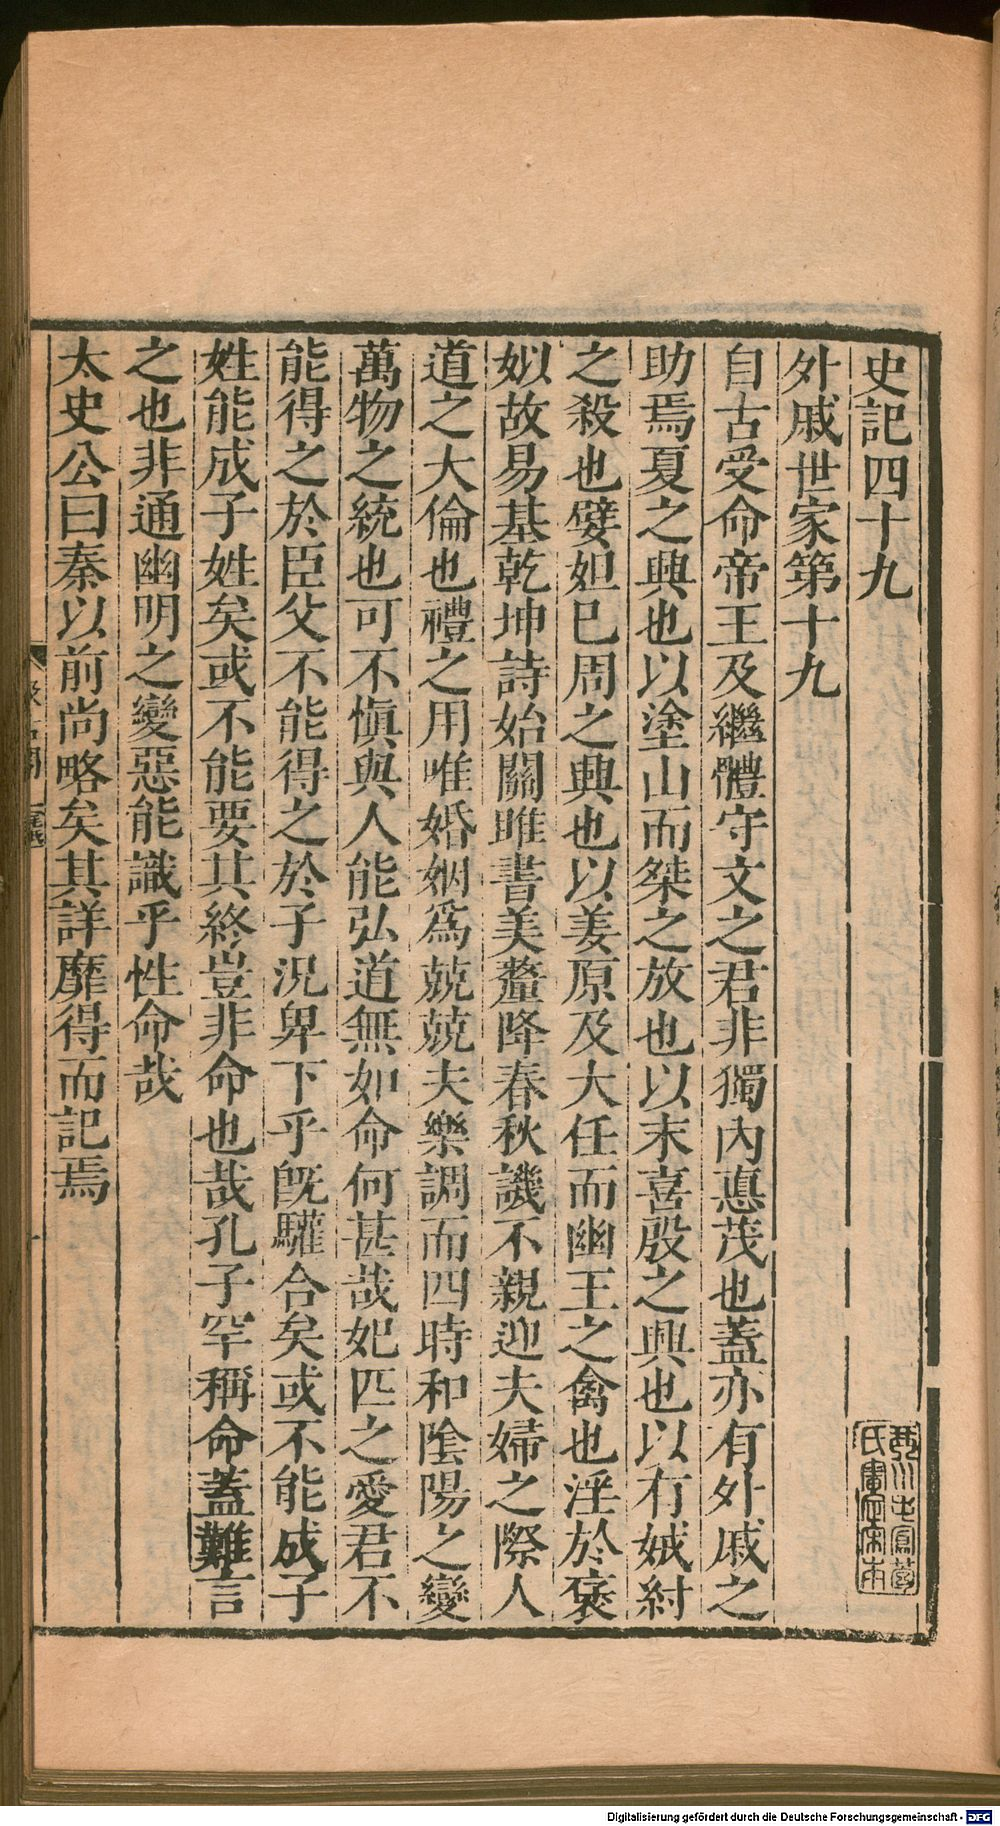 史記四十九
外戚世家第十九
自古受命帝王及繼體守文之君非獨內悳茂也蓋亦有外戚之
助焉夏之興也以塗山而桀之放也以末喜殷之興也以有娀紂
之殺也嬖妲已周之興也以姜原及大任而幽王之禽也淫於褒
姒故易基乾坤詩始關雎書美釐降春秋譏不親迎夫婦之際人
道之大倫也禮之用唯婚姻為兢兢夫樂調而四時和陰陽之變
萬物之統也可不慎與人能弘道無如命何甚哉妃匹之愛君不
能得之於臣父不能得之於子況卑下乎旣驩合矣或不能成子
姓能成子姓矣或不能要其終豈非命也哉孔子罕稱命蓋難言
之也非通幽明之變惡能識乎性命哉
太史公曰秦以前尚略矣其詳靡得而記焉
Digitalisierung gefördert durch die Deutsche Forschungsgemeinschaft - DFG